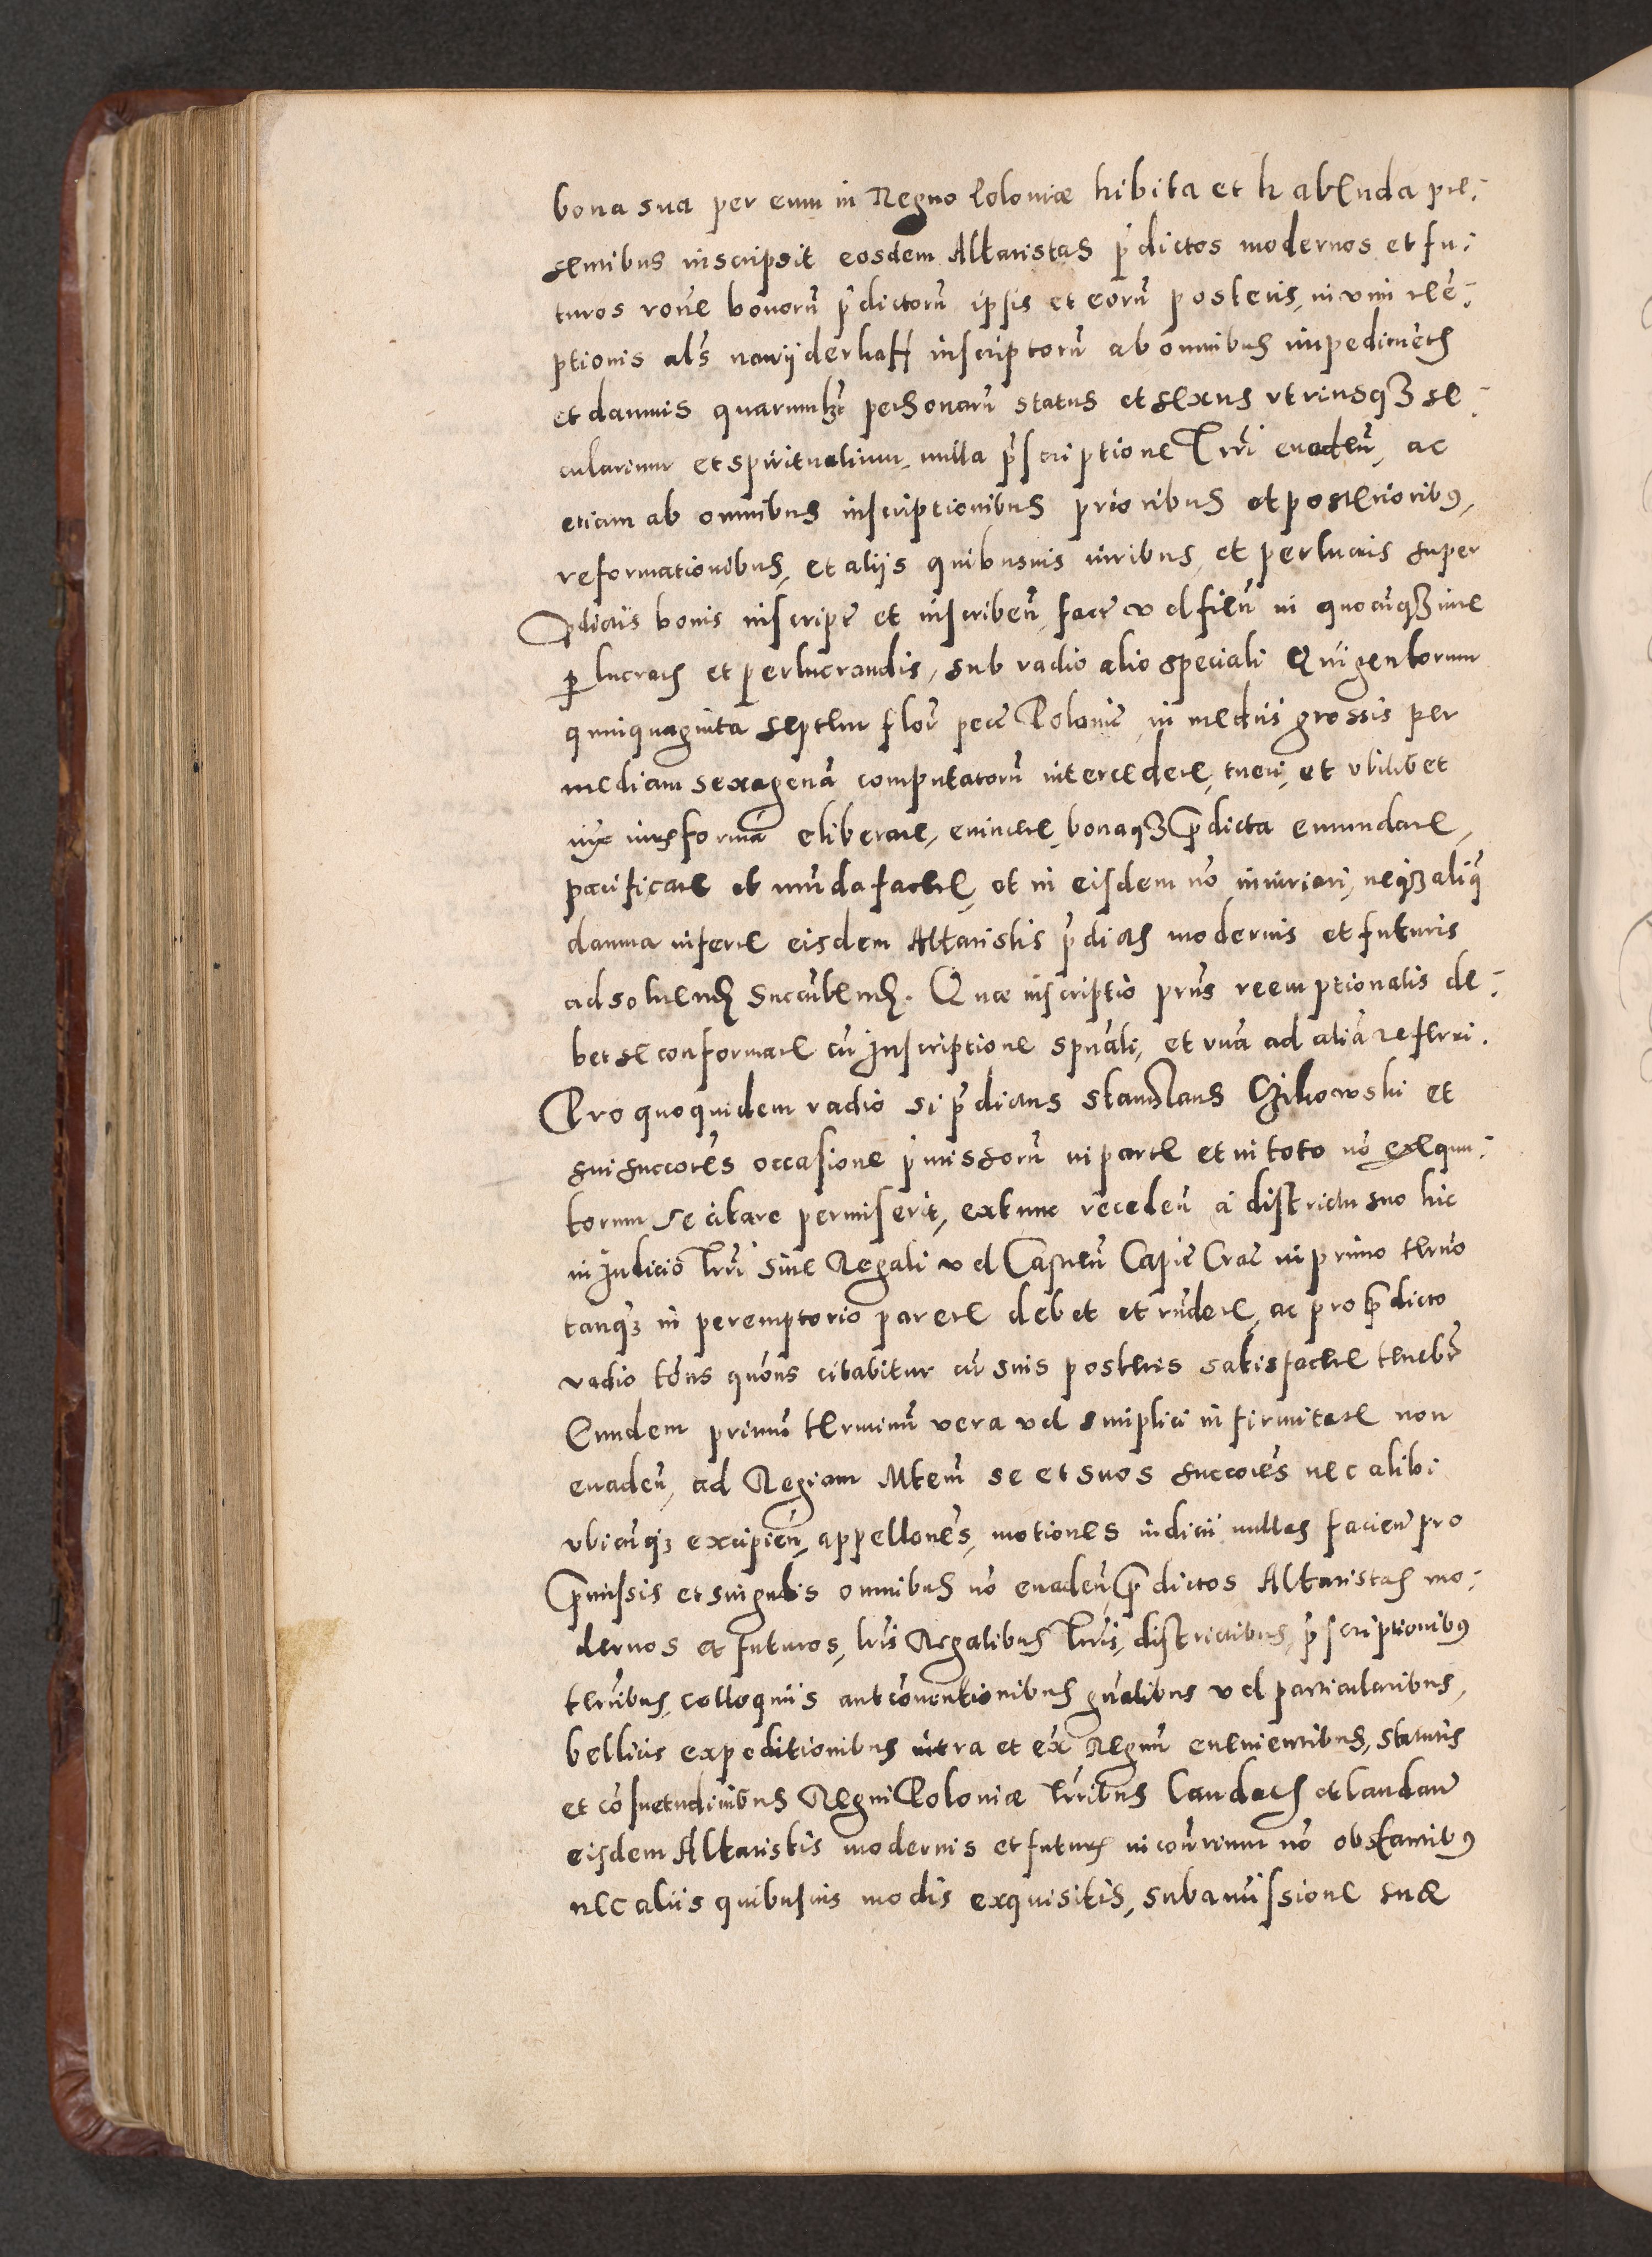 bona sua per eum in Regno Poloniæ hibita et habenda præ:
sentibus inscripsit eosdem Altaristas p̄dictos modernos et fu:
turos rōne bonorū p̄dictorū ipsis et eorū posteris, in vim reē:
ptionis al̄s nawijderkaff inscriptorū ab omnibus impedimētis
et damnis quarumlȝt personarū status et sexus vtriusqȝ se:
cularium et spiritualium, nulla p̄scriptione Trr̄i evadeñ, ac
etiam ab omnibus inscriptionibus prioribus et posterioribꝰ,
reformationibus, et alijs quibusuis iuribus, et perlucris super
P̄dictis bonis inscript̄ et inscribeñ, fact̄ vel fieñ in quocūqȝ iure
ꝑlucratis et perlucrandis, sub vadio alio speciali Quigentorum
quinquaginta septem flor̄ pecc̄ Polonic̄ in medijs grossis per
mediam sexagenā computatorū intercedere, tueri, et vbilibet
iux̄ iuris formā eliberare, evincere, bonaqȝ P̄dicta emundare,
pacificare et mūda facere, et in eisdem nō iniuriari, neqȝ aliq̄
damna inferre eisdem Altaristis p̄dictis modernis et futuris
ad soluend̄ succūbend̄. Quæ inscriptio prn̄s reemptionalis de:
bet se conformare cū Inscriptione spūali, et vnā ad aliā referri.
Pro quo quidem vadio si p̄dictus Stanislaus Czikowski et
sui succōres occasione p̄missorū in parte et in toto nō exequu:
torum se citare permiserit, extunc recedeñ a districtu suo hic
in Judicio Trr̄i siue Regali vel Castreñ Capit̄ Crac̄ in primo termō
tanqȝ in peremptorio parere debet et rūdere, ac pro P̄dicto
vadio tōns quōns citabitur cū suis posteris satisfacere tenebr̄
Eundem primū terminū vera vel simplici infirmitate non
evadeñ, ad Regiam Mtem̄ se et suos succōres nec alibi
vbicūqȝ excipieñ, appellōnes, motiones iudicij nullas facieñ pro
P̄missis et singulis omnibus nō evadeñ P̄dictos Altaristas mo:
dernos et futuros, lrīs Regalibus Trr̄is, districtibus, p̄scriptionibꝰ
termībus, colloquijs aut cōventionibus gn̄alibus vel particularibus,
bellicis expeditionibus intra et ex̄ Regnū evenientibus, statutis
et cōsuetudinibus Regni Poloniæ Trr̄ibus laudatis et laudañ
eisdem Altaristis modernis et futuris in contr̄rium nō obstantibꝰ
nec aliis quibusuis modis exquisitis, sub amissione suæ